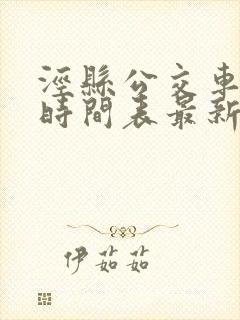 涇縣公交車
時間表最新
伊茹茹